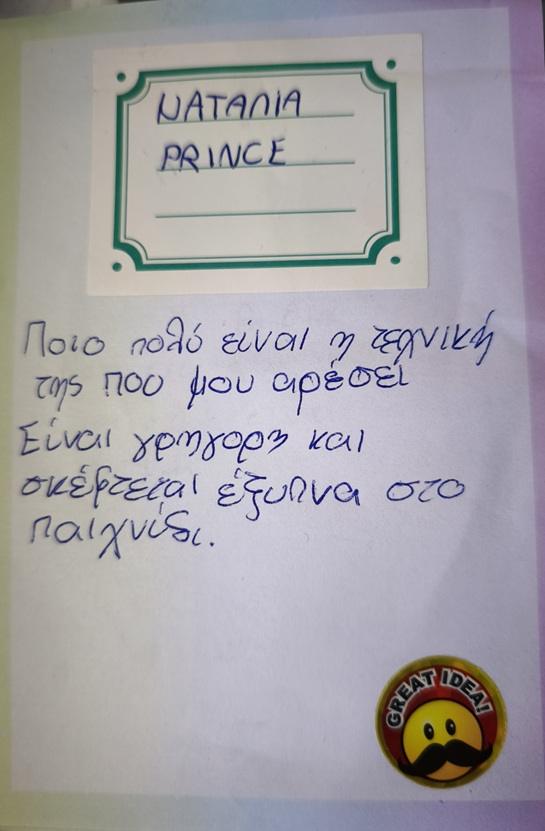 ΝΑΤΑΛΙΑ
PRINCE
Ποιο πολύ είναι η τεχνική
της που μου αρέσει
Είναι γρηγορη και
σκέφτεται έξυπνα στο
παιχνίδι.
GREAT IDEA!